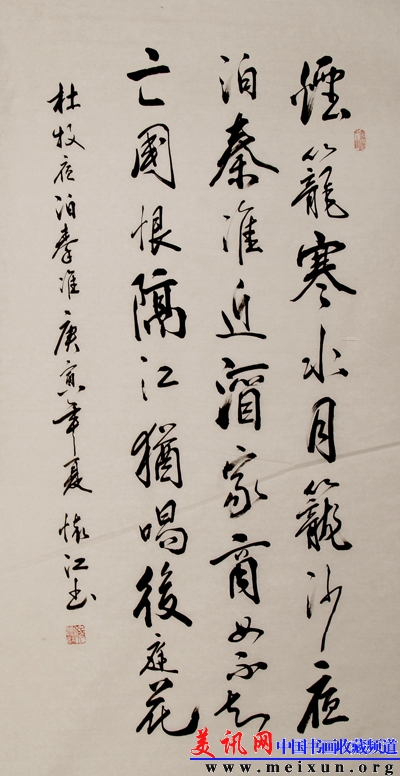 煙籠寒水月籠沙夜
泊秦淮近酒家商女不知
亡國恨隔江猶唱後庭花
杜牧夜泊秦淮庚寅年夏 懷江书
美讯网 中国书画收藏频道
www.meixun.org